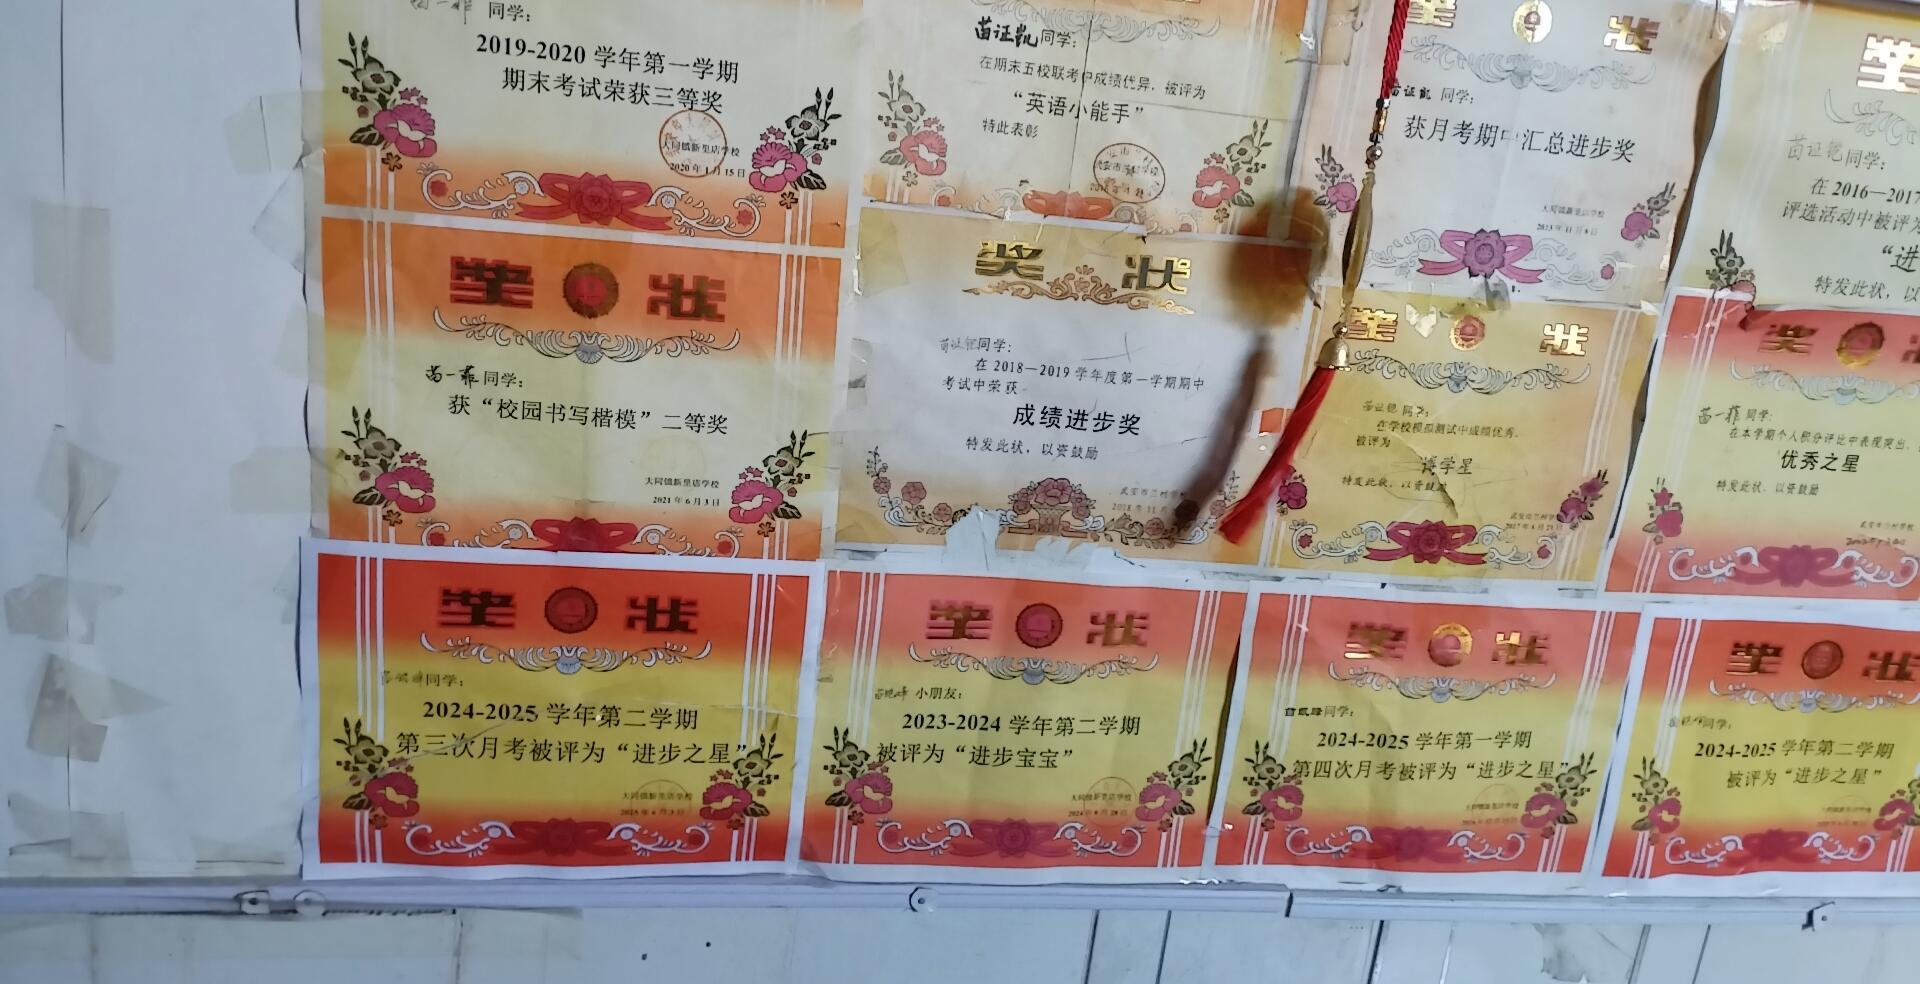 同学：
2019-2020 学年第一学期
期末考试荣获三等奖
大同镇新里店学校
2020 年 1 月 15 日
苗证凯同学：
在期末五校联考中成绩优异，被评为
“英语小能手”
特此表彰
奖 状
苗证凯 同学：
获月考期中汇总进步奖
大同镇新里店学校
奖
苗证凯同学：
在 2016—2017
评选活动中被评为
“进
特发此状，以
奖 状
苗一菲同学：
获“校园书写楷模”二等奖
大同镇新里店学校
2021 年 6 月 3 日
奖 状
苗证凯同学：
在 2018—2019 学年度第一学期期中
考试中荣获
成绩进步奖
特发此状，以资鼓励
武安市兰村学校
2018 年 11 月
奖 状
苗证凯 同学：
在学校模拟测试中成绩优秀，
被评为
博学星
特发此状，以资鼓励
奖
苗一菲同学：
在本学期个人积分评比中表现突出，
优秀之星
特发此状，以资鼓励
武安市兰村学校
奖 状
同学：
2024-2025 学年第二学期
第三次月考被评为“进步之星”
大同镇新里店学校
奖 状
小朋友：
2023-2024 学年第二学期
被评为“进步宝宝”
大同镇新里店学校
奖 状
同学：
2024-2025 学年第一学期
第四次月考被评为“进步之星”
大同镇新里店学校
奖 状
同学：
2024-2025 学年第二学期
被评为“进步之星”